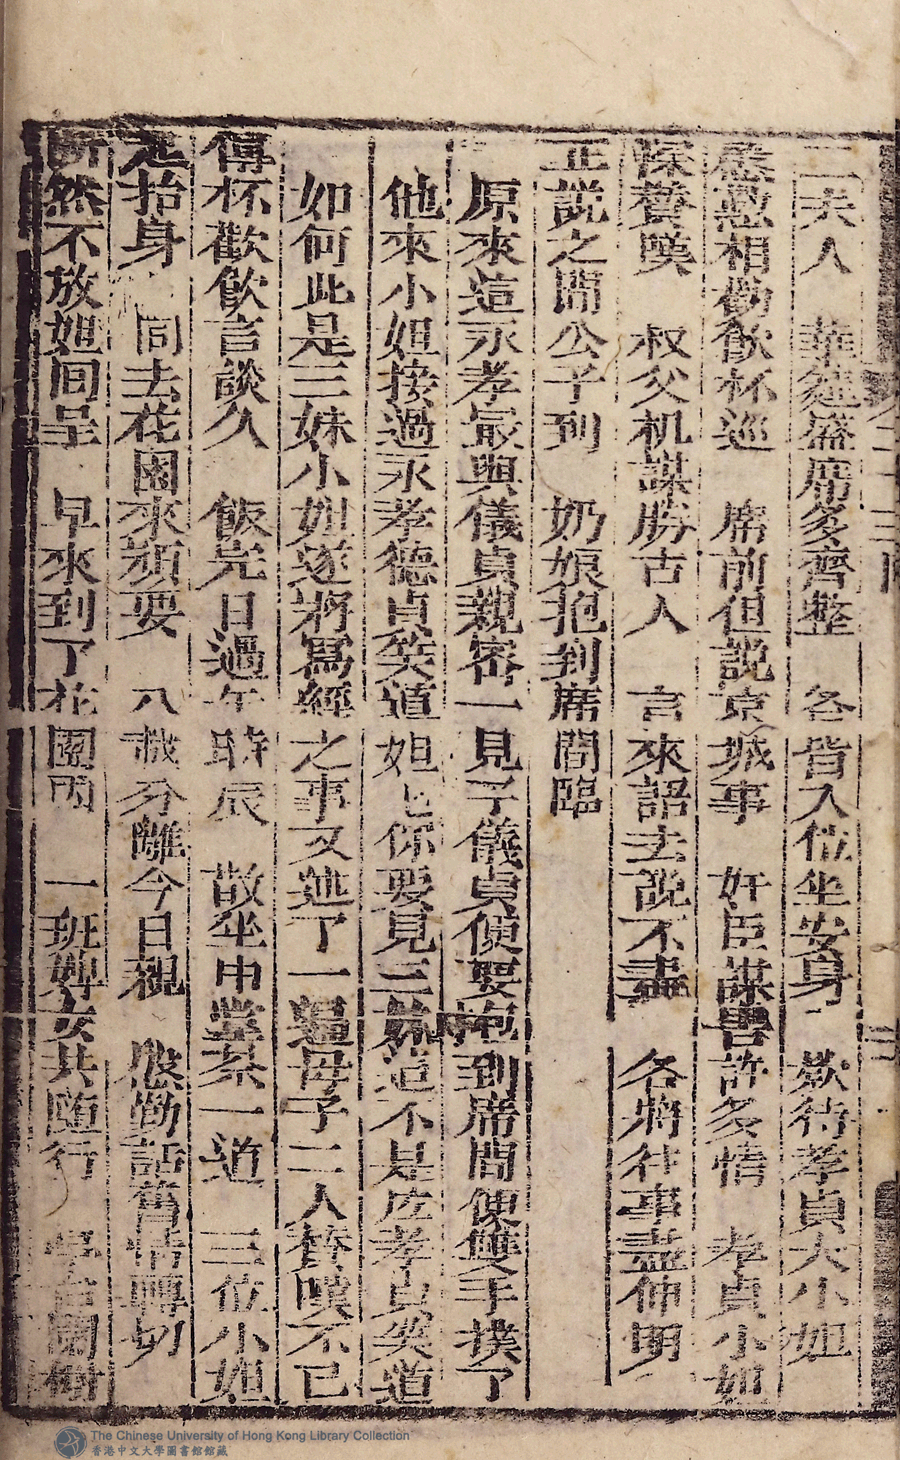 二夫人　華筵盛席多齊整　各皆入位坐安身　欵待孝貞大小姐
慇懃相勸飲杯巡　席前但説京城事　奸臣謀害許多情　孝貞小姐
深贊嘆　叔父机謀勝古人　言來語去説不盡　各將往事盡伸明
正説之間公子到　奶娘抱到席間臨
原來這永孝最與儀貞親密一見了儀貞便要抱到席間便雙手撲了
他來小姐接過永孝德貞笑道姐上你要見三妹這不是庅孝貞笑道
如何此是三妹小姐遂將寫經之事又述了一遍母子二人賛嘆不已
傳杯歡飲言談久　飯完日過午時辰　散坐中堂茶一道　三位小姐
起抬身　同去花園來頑耍　八載分離今日親　慇勤話舊情轉切
斷然不放姐回呈　早來到了花園內　一班婢女共随行　亭台閣樹
The Chinese University of Hong Kong Library Collection
香港中文大學圖書館館藏